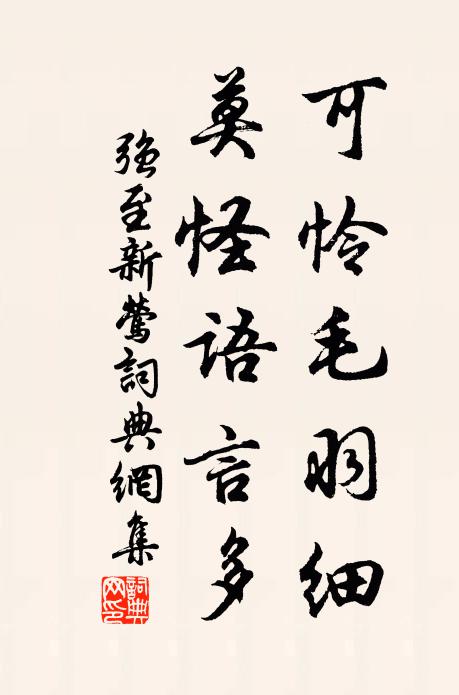 可怜毛羽细
莫怪语言多
强至新莺詞典網集
詞典网印